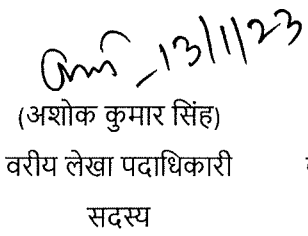 13/1/23
(अशोक कुमार सिंह)
वरीय लेखा पदाधिकारी
सदस्य